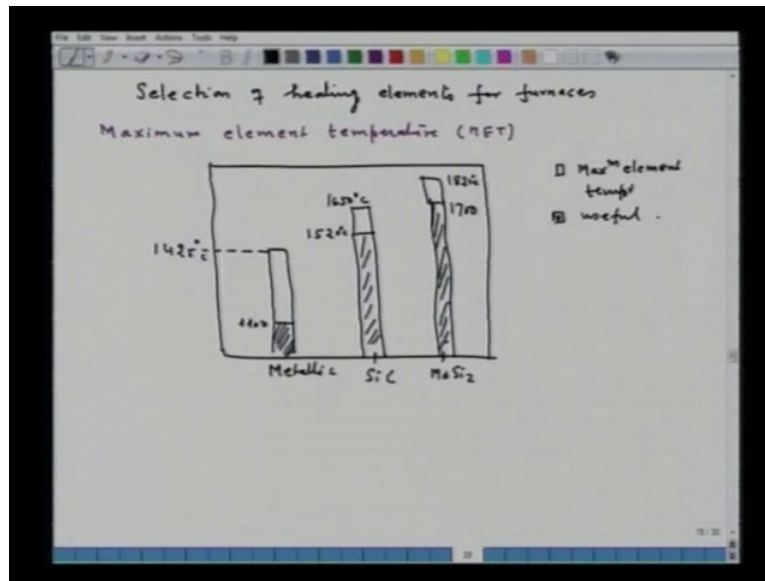 File Edit View Insert Actions Tools Help
Selection of heating elements for furnaces
Maximum element temperature (MET)
1425°C
1100
Metallic
1650°C
1520°C
SiC
1820°C
1700
MoSi2
Maxm element
tempr
useful.
19